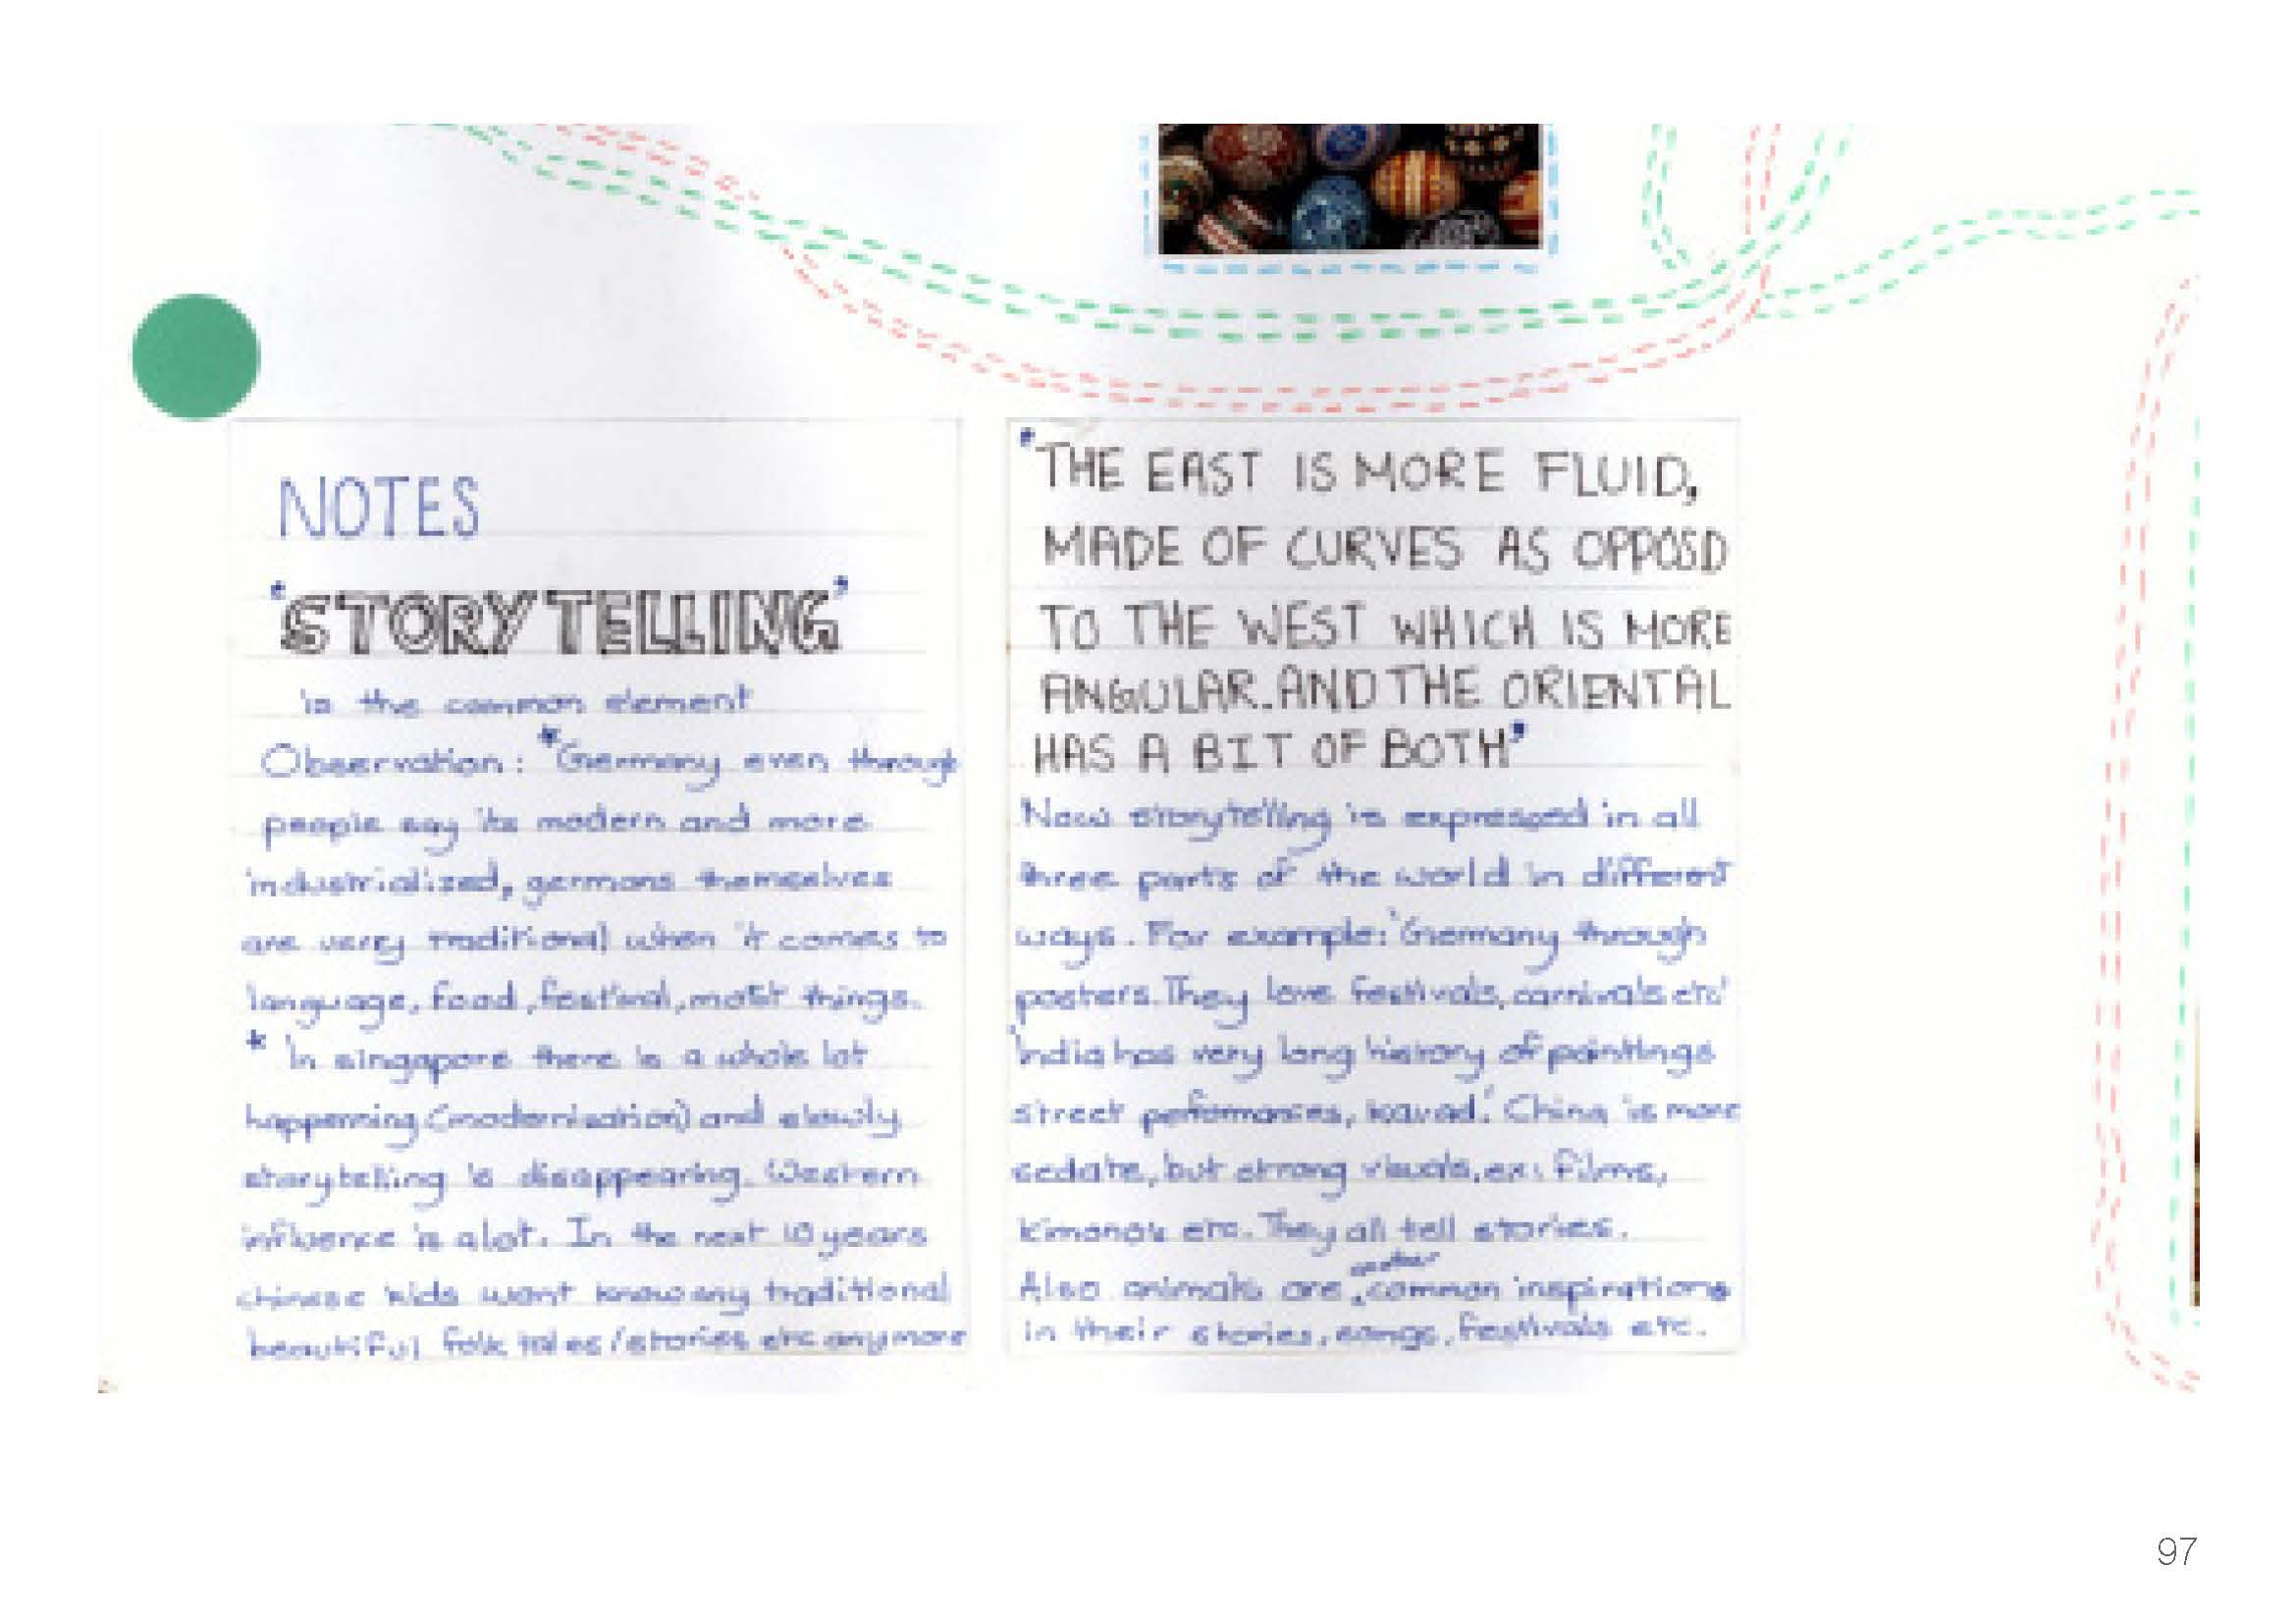 NOTES
'STORYTELLING'
is the common element
Observation: *Germany even through
people say its modern and more
industrialized, germans themselves
are very traditional when it comes to
language, food, festival, most things.
* In singapore there is a whole lot
happening (modernisation) and slowly
storytelling is disappearing. Western
influence is alot. In the next 10 years
chinese kids wont know any traditional
beautiful folk tales/stories etc anymore
'THE EAST IS MORE FLUID,
MADE OF CURVES AS OPPOSD
TO THE WEST WHICH IS MORE
ANGULAR. AND THE ORIENTAL
HAS A BIT OF BOTH'
Now storytelling is expressed in all
three parts of the world in different
ways. For example: 'Germany through
posters. They love festivals, carnivals etc'
'India has very long history of paintings
street performances, kavad.' China is more
sedate, but strong visuals, ex: films,
kimonos etc. They all tell stories.
Also animals are another common inspirations
in their stories, songs, festivals etc.
97